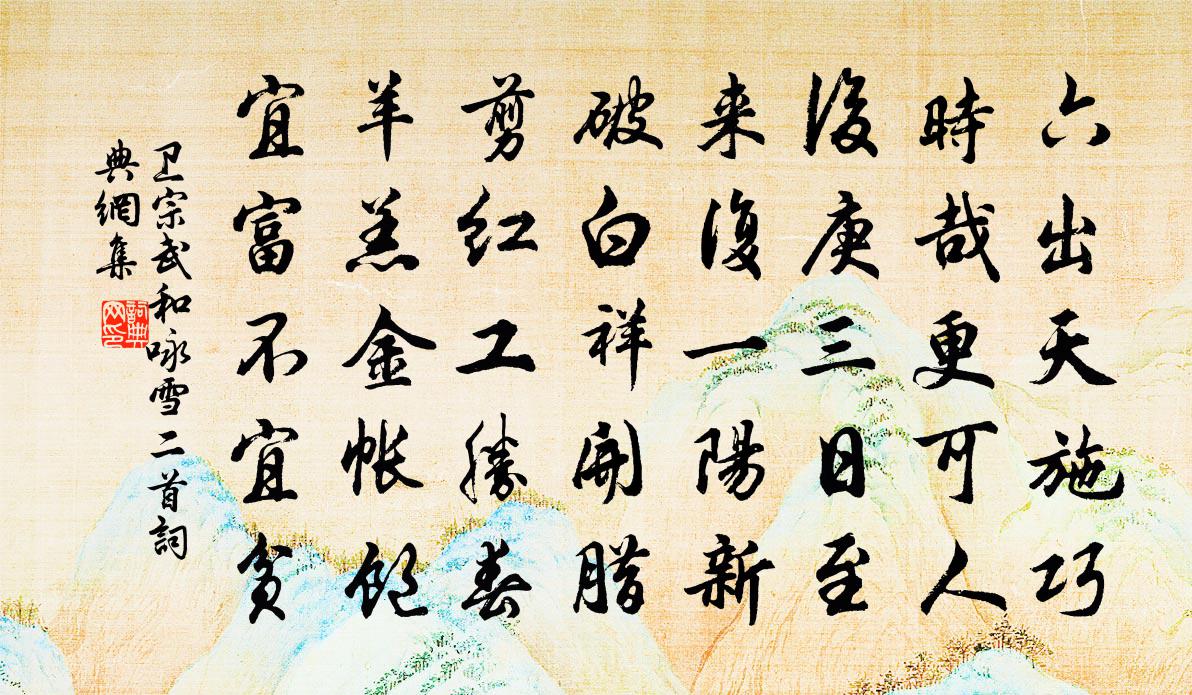 六出天施巧
時哉更可人
後庚三日至
来復一陽新
破白祥開腊
剪红工勝春
羊羔金帳飽
宜富不宜贫
卫宗武和咏雪二首詞
典網集
詞典
网印